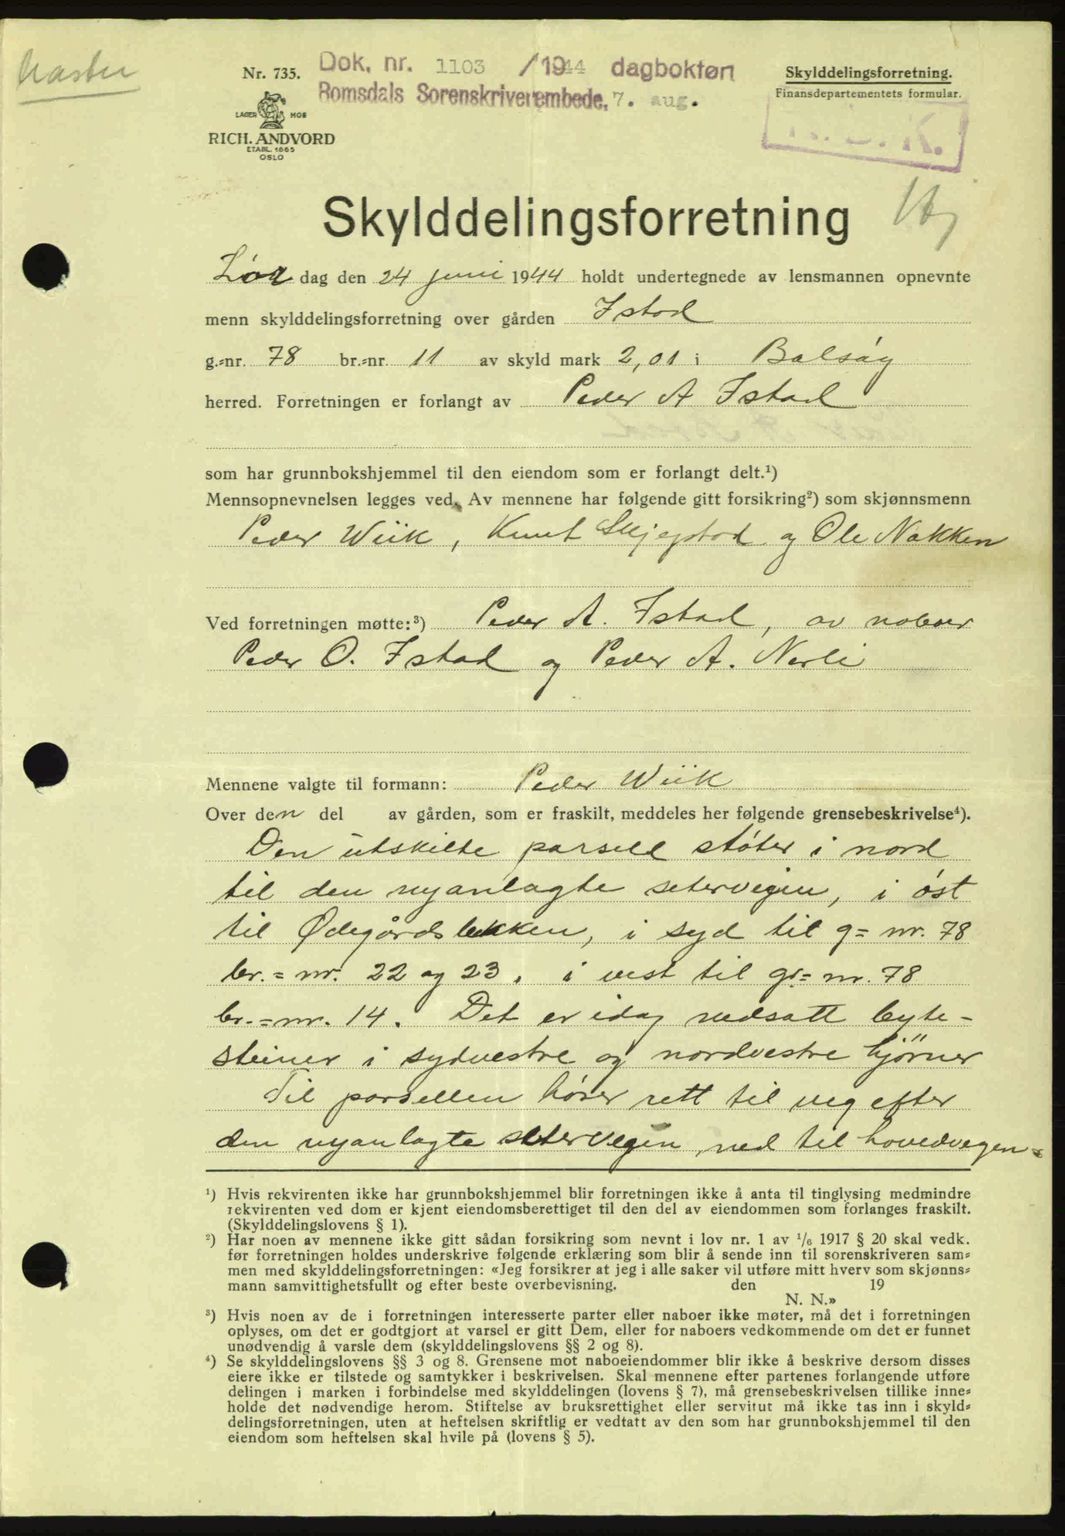 Nr. 735.
Dok. nr. 1103 /1944 dagboktøn
Romsdals Sorenskriverembede, 7. aug.
Skylddelingsforretning.
Finansdepartementets formular.
LAGER MOE
RICH. ANDVORD
ETABL. 1865
OSLO
Skylddelingsforretning
Lør dag den 24 juni 1944 holdt undertegnede av lensmannen opnevnte
menn skylddelingsforretning over gården Istad
g.=nr. 78 br.=nr. 11 av skyld mark 2,01 i Bolsøy
herred. Forretningen er forlangt av Peder A Istad
som har grunnbokshjemmel til den eiendom som er forlangt delt.¹)
Mennsopnevnelsen legges ved. Av mennene har følgende gitt forsikring²) som skjønnsmenn
Peder Wiik, Knut Skjegstad og Ole Nakken
Ved forretningen møtte:³) Peder A. Istad, av naboer
Peder O. Istad og Peder A. Nerli
Mennene valgte til formann: Peder Wiik
Over den del av gården, som er fraskilt, meddeles her følgende grensebeskrivelse⁴).
Den utskilte parsell støter i nord
til den nyanlagte setervegin, i øst
til Ødegårdsbekken, i syd til g= nr. 78
br.= nr. 22 og 23. i vest til gr= nr. 78
br.=nr. 14. Det er idag nedsatt byte-
steiner i sydvestre og nordvestre hjørner
Til parsellen hører rett til veg efter
den nyanlagte setervegin ned til hovedvegen=
¹) Hvis rekvirenten ikke har grunnbokshjemmel blir forretningen ikke å anta til tinglysing medmindre
rekvirenten ved dom er kjent eiendomsberettiget til den del av eiendommen som forlanges fraskilt.
(Skylddelingslovens § 1).
²) Har noen av mennene ikke gitt sådan forsikring som nevnt i lov nr. 1 av ¹/₆ 1917 § 20 skal vedk.
før forretningen holdes underskrive følgende erklæring som blir å sende inn til sorenskriveren sam=
men med skylddelingsforretningen: «Jeg forsikrer at jeg i alle saker vil utføre mitt hverv som skjønns=
mann samvittighetsfullt og efter beste overbevisning. den 19
N. N.»
³) Hvis noen av de i forretningen interesserte parter eller naboer ikke møter, må det i forretningen
oplyses, om det er godtgjort at varsel er gitt Dem, eller for naboers vedkommende om det er funnet
unødvendig å varsle dem (skylddelingslovens §§ 2 og 8).
⁴) Se skylddelingslovens §§ 3 og 8. Grensene mot naboeiendommer blir ikke å beskrive dersom disses
eiere ikke er tilstede og samtykker i beskrivelsen. Skal mennene efter partenes forlangende utføre
delingen i marken i forbindelse med skylddelingen (lovens § 7), må grensebeskrivelsen tillike inne=
holde det nødvendige herom. Stiftelse av bruksrettighet eller servitut må ikke tas inn i skyld=
delingsforretningen, uten at heftelsen skriftlig er vedtatt av den som har grunnbokshjemmel til den
eiendom som heftelsen skal hvile på (lovens § 5).